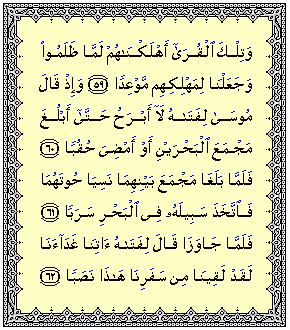 وَتِلْكَ ٱلْقُرَىٰٓ أَهْلَكْنَـٰهُمْ لَمَّا ظَلَمُوا۟
وَجَعَلْنَا لِمَهْلِكِهِم مَّوْعِدًا ﴿٥٩﴾ وَإِذْ قَالَ
مُوسَىٰ لِفَتَىٰهُ لَآ أَبْرَحُ حَتَّىٰٓ أَبْلُغَ
مَجْمَعَ ٱلْبَحْرَيْنِ أَوْ أَمْضِىَ حُقُبًا ﴿٦٠﴾
فَلَمَّا بَلَغَا مَجْمَعَ بَيْنِهِمَا نَسِيَا حُوتَهُمَا
فَٱتَّخَذَ سَبِيلَهُۥ فِى ٱلْبَحْرِ سَرَبًا ﴿٦١﴾
فَلَمَّا جَاوَزَا قَالَ لِفَتَىٰهُ ءَاتِنَا غَدَآءَنَا
لَقَدْ لَقِينَا مِن سَفَرِنَا هَـٰذَا نَصَبًا ﴿٦٢﴾